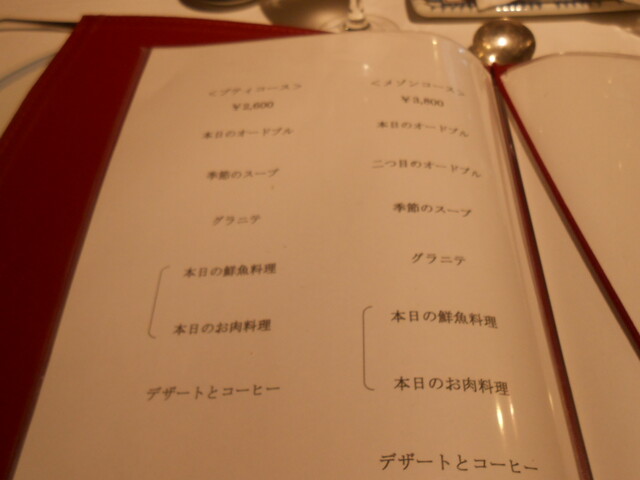 <プティコース>
¥2,600
本日のオードブル
季節のスープ
グラニテ
本日の鮮魚料理
本日のお肉料理
デザートとコーヒー
<メゾンコース>
¥3,800
本日のオードブル
二つ目のオードブル
季節のスープ
グラニテ
本日の鮮魚料理
本日のお肉料理
デザートとコーヒー